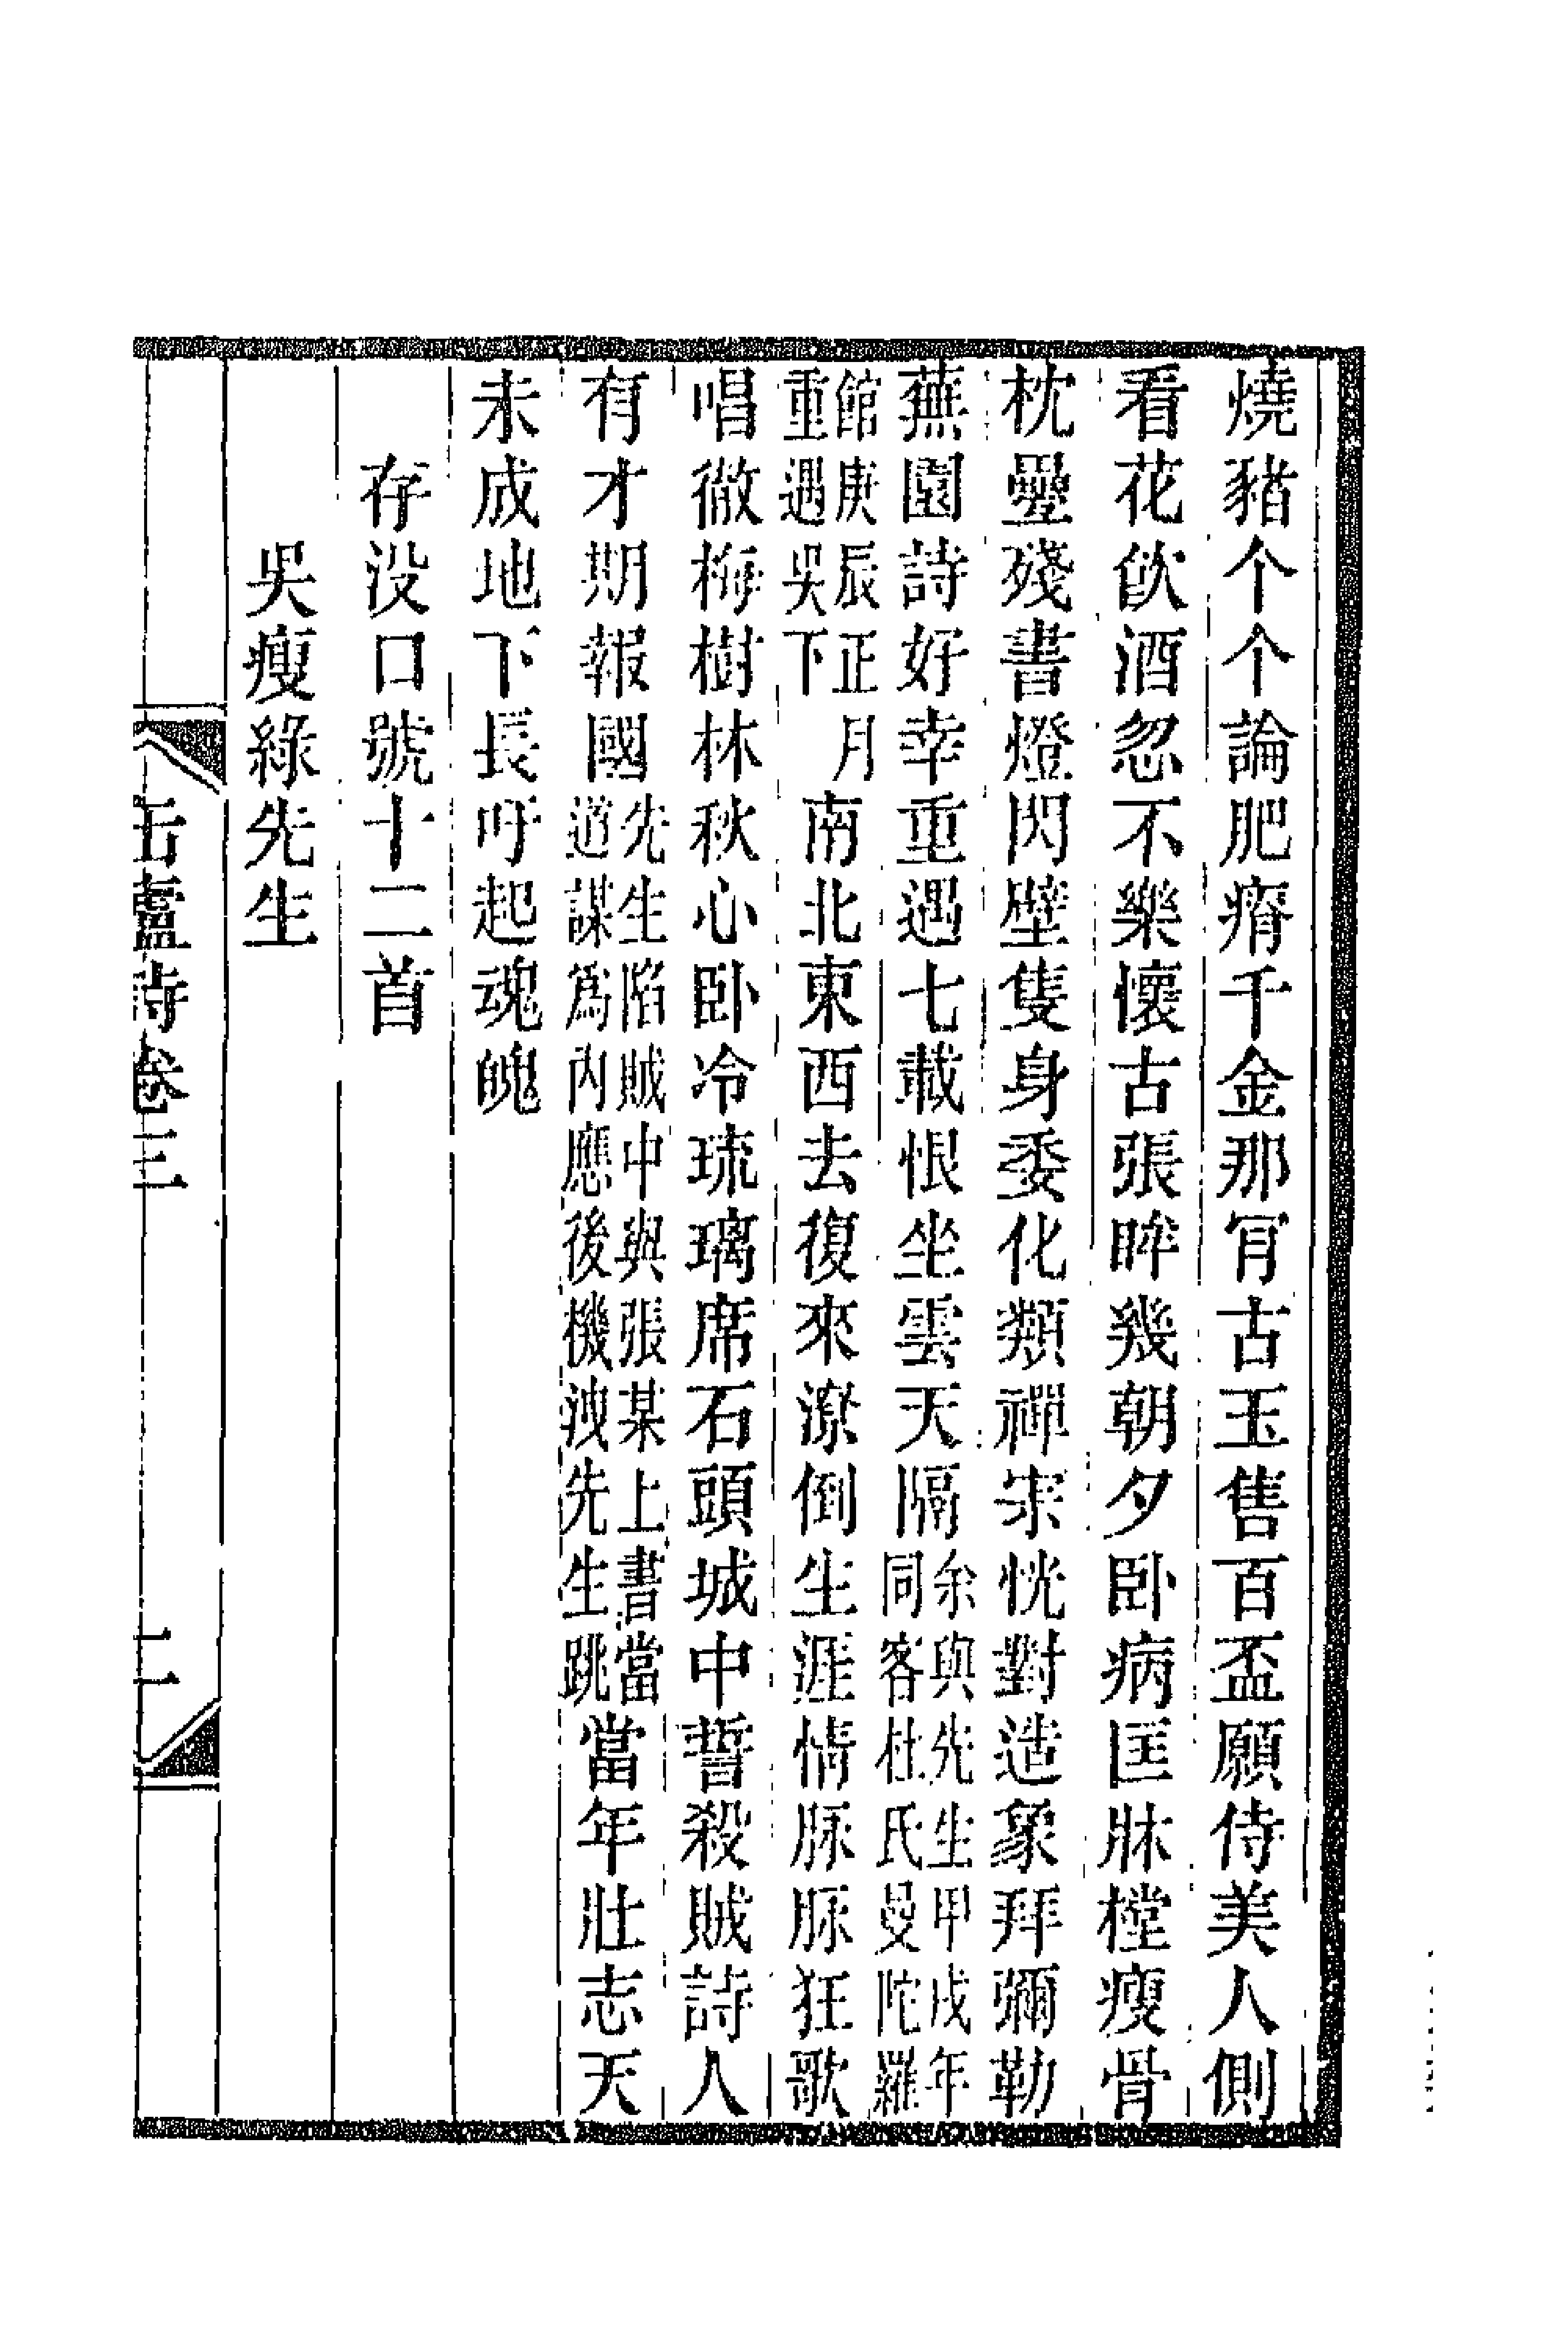 燒豬个个論肥瘠千金那肎古玉售百盃願侍美人側
看花飲酒忽不樂懷古張眸幾朝夕卧病匡牀樘瘦骨
枕壘殘書燈閃壁隻身委化類禪宗恍對造象拜彌勒
蕪園詩好幸重遇七載恨坐雲天隔余與先生甲戌年同客杜氏曼陀羅
館庚辰正月重遇吳下南北東西去復來潦倒生涯情脈脈狂歌
唱徹梅樹林秋心卧冷琉璃席石頭城中誓殺賊詩人
有才期報國先生陷賊中與張某上書當道謀為內應後機洩先生跳當年壯志天
未成地下長吁起魂魄
存没口號十二首
吳瘦綠先生
缶廬詩卷三
二